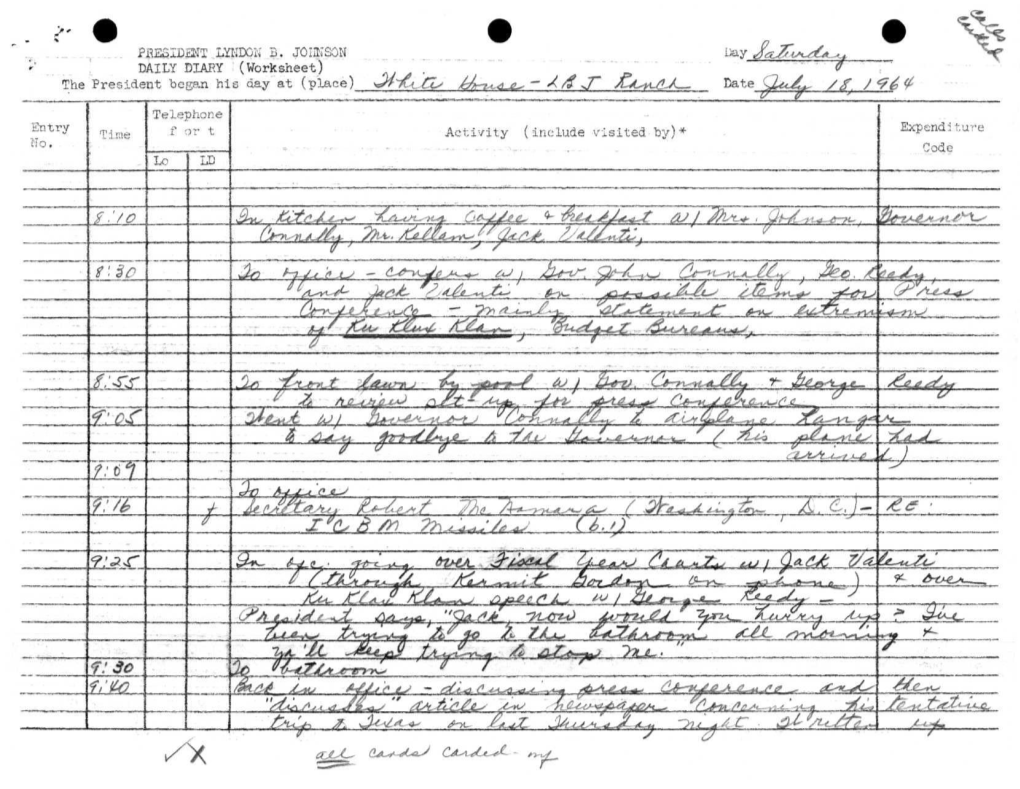 Calls
Carded
PRESIDENT LYNDON B. JOHNSON
DAILY DIARY (Worksheet)
Day Saturday
The President began his day at (place) White House - LBJ Ranch Date July 18, 1964
Entry No. Time Telephone f or t Lo LD Activity (include visited by)* Expenditure Code
8:10 In Kitchen having Coffee & breakfast w/ Mrs. Johnson, Governor
Connally, Mr. Kellam, Jack Valenti,
8:30 To office - confers w/ Gov. John Connally, Geo. Reedy,
and Jack Valenti on possible items for Press
Conference - mainly statement on extremism
of Ku Klux Klan, Budget Bureaus,
8:55 To front lawn by pool w/ Gov. Connally & George Reedy
to review set-up for press conference
9:05 Went w/ Governor Connally to airplane hangar
to say goodbye to the Governor (his plane had
arrived)
9:09
To office
9:16 f Secretary Robert McNamara (Washington, D.C.) - RE:
ICBM Missiles (b.1)
9:25 In ofc. going over Fiscal Year Charts w/ Jack Valenti
(through Kermit Gordon on phone) & over
Ku Klux Klan speech w/ George Reedy -
President says, "Jack, now would you hurry up? I've
been trying to go to the bathroom all morning &
ya'll keep trying to stop me."
9:30 To bathroom
9:40 Back in office - discussing press conference and then
"discusses" article in newspaper concerning his tentative
trip to Texas on last Thursday night. Written up
all cards carded - mf